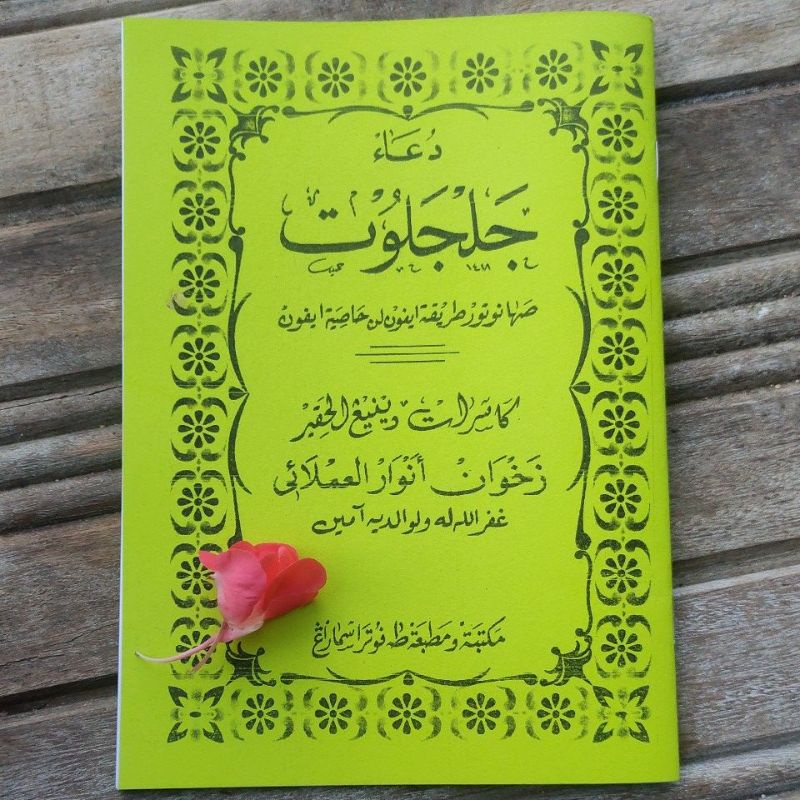 دُعَاءْ
جَلْجَلُوْتْ
١٤٧٨
صها نوتور طريقة ايفون لن خاصية ايفون
كاسرات دينيڠ الحقير
زَخْوَانْ أَنْوَارْ العملائي
غفر الله له ولوالديه آمين
مكتبة ومطبعة طه فوترا سماراڠ